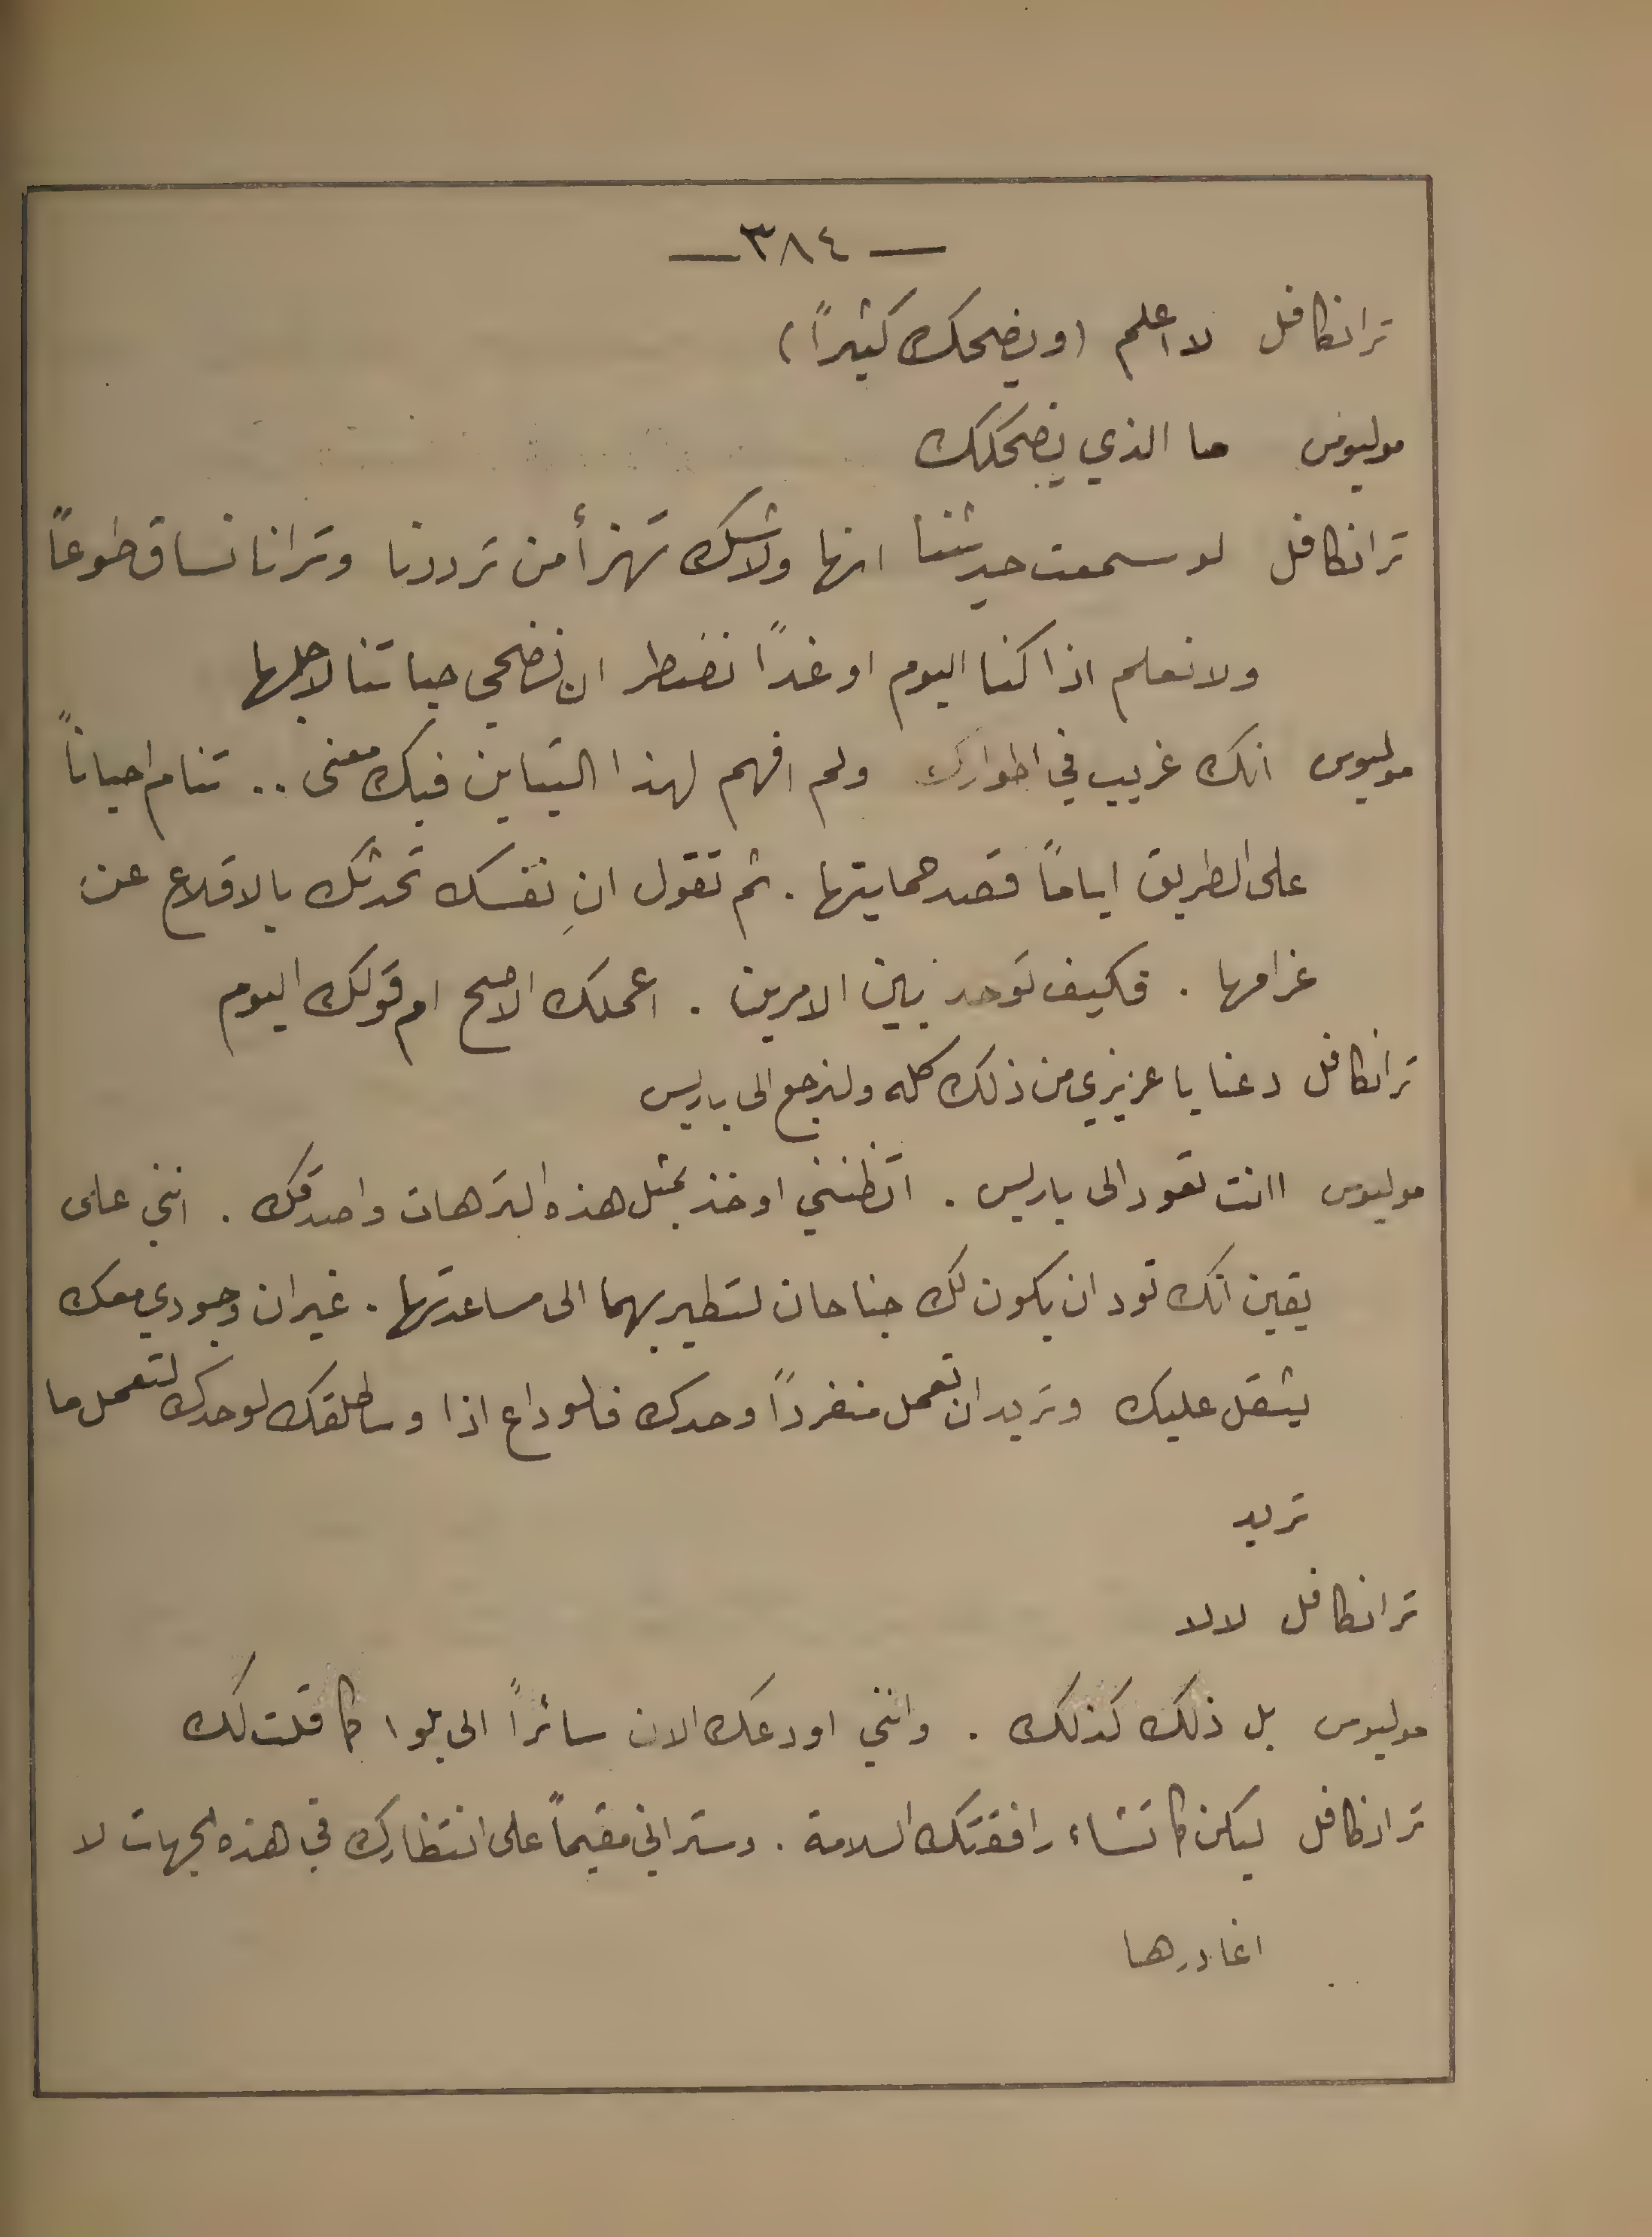 — ٣٨٤ —
ترانكافل لا اعلم (ويضحك كثيراً)
موليوس ما الذي يضحكك
ترانكافل لو سمعت حديثنا انها ولاشك تهزأ من ترددنا وترانا نساق طوعاً
ولا نعلم اذا كنا اليوم او غداً نضطر ان نضحي حياتنا لاجلها
موليوس انك غريب في اطوارك ولم افهم لهذا التباين فيك معنى .. تنام احياناً
على الطريق اياماً قصد حمايتها . ثم تقول ان نفسك تحدثك بالاقلاع عن
غرامها . فكيف توحد بين الامرين . اعملك الاصح ام قولك اليوم
ترانكافل دعنا يا عزيزي من ذلك كله ولنرجع الى باريس
موليوس اانت تعود الى باريس . اتظنني اوخذ بمثل هذه الترهات واصدقك . انني على
يقين انك تود ان يكون لك جناحان لتطير بهما الى مساعدتها . غير ان وجودي معك
يثقل عليك وتريد ان تعمل منفرداً وحدك فالوداع اذا وساطلقك لوحدك لتعمل ما
تريد
ترانكافل لا لا
موليوس بل ذلك كذلك . وانني اودعك الان سائراً الى بلوا كما قلت لك
ترانكافل ليكن كما تشاء رافقتك السلامة . وستراني مقيماً على انتظارك في هذه الجهات لا
اغادرها